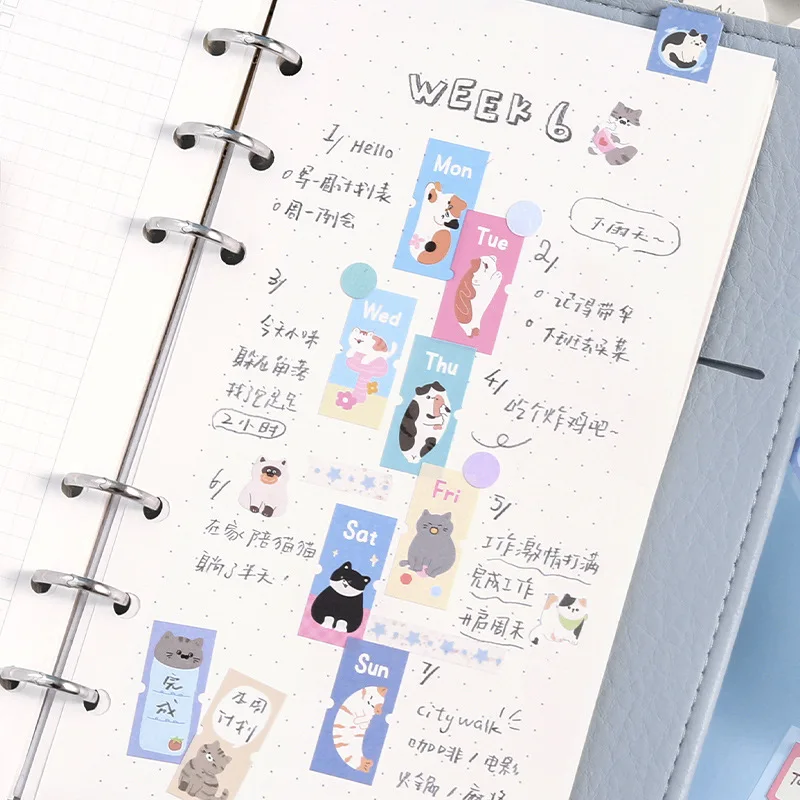 WEEK 6
1/ Hello
写一周计划表
周一例会
Mon
Tue
下雨天~
2/
记得带伞
下班去买菜
3/
今天小咪
躲在角落
找它足足
2小时
Wed
Thu
4/
吃个炸鸡吧~
Fri
5/
工作激情打满
完成工作
开启周末
6/
在家陪猫猫
躺了半天!
Sat
Sun
7/
citywalk
咖啡/电影
火锅/
完成
本周
计划